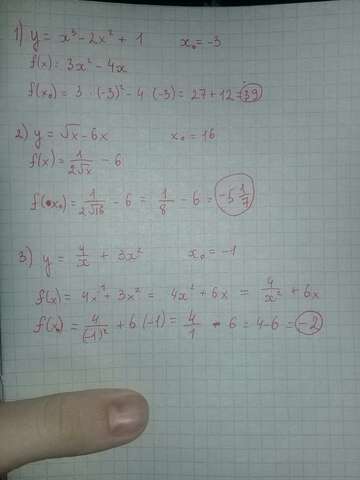 1) y = x³ - 2x² + 1 x₀ = -3
f(x) = 3x² - 4x
f(x₀) = 3 · (-3)² - 4 · (-3) = 27 + 12 = 39
2) y = √x - 6x x₀ = 16
f(x) = 1/(2√x) - 6
f(x₀) = 1/(2√16) - 6 = 1/8 - 6 = -5 1/7
3) y = 4/x + 3x² x₀ = -1
f(x) = 4x⁻¹ + 3x² = 4x² + 6x = 4/x² + 6x
f(x₀) = 4/(-1)² + 6 · (-1) = 4/1 - 6 = 4 - 6 = -2